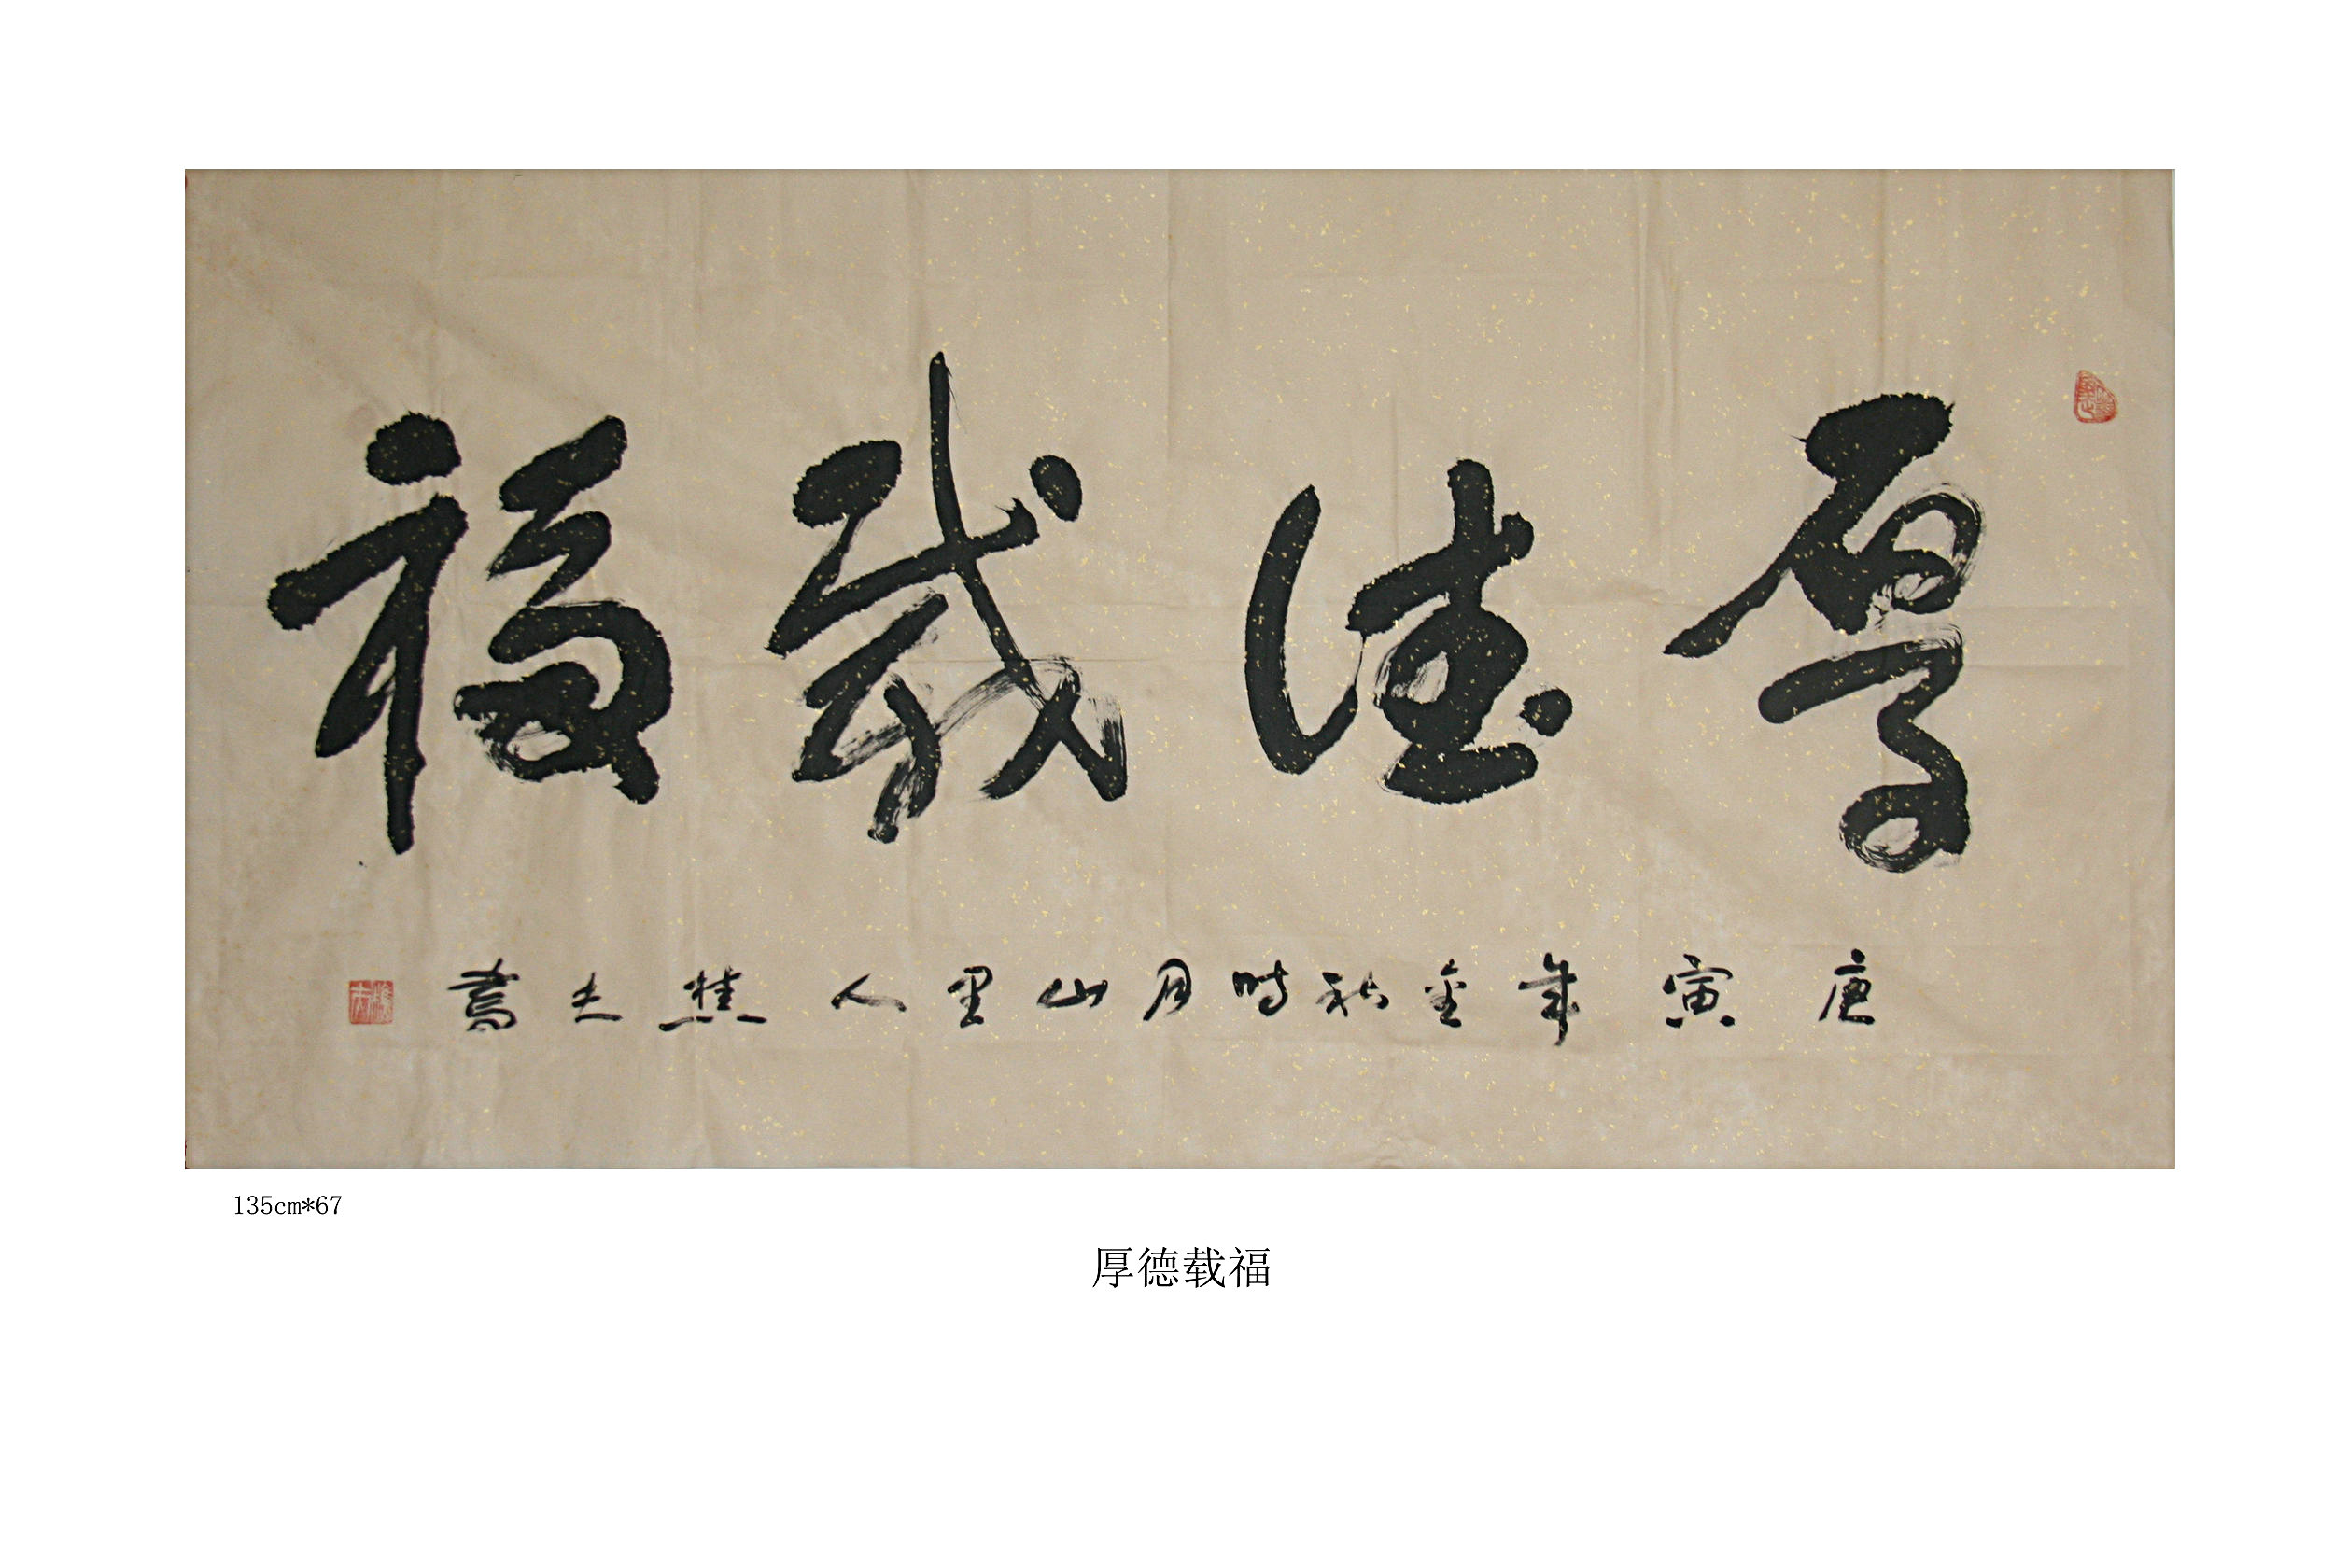 厚德载福
庚寅年金秋時月山里人樵夫書
135cm*67
厚德载福